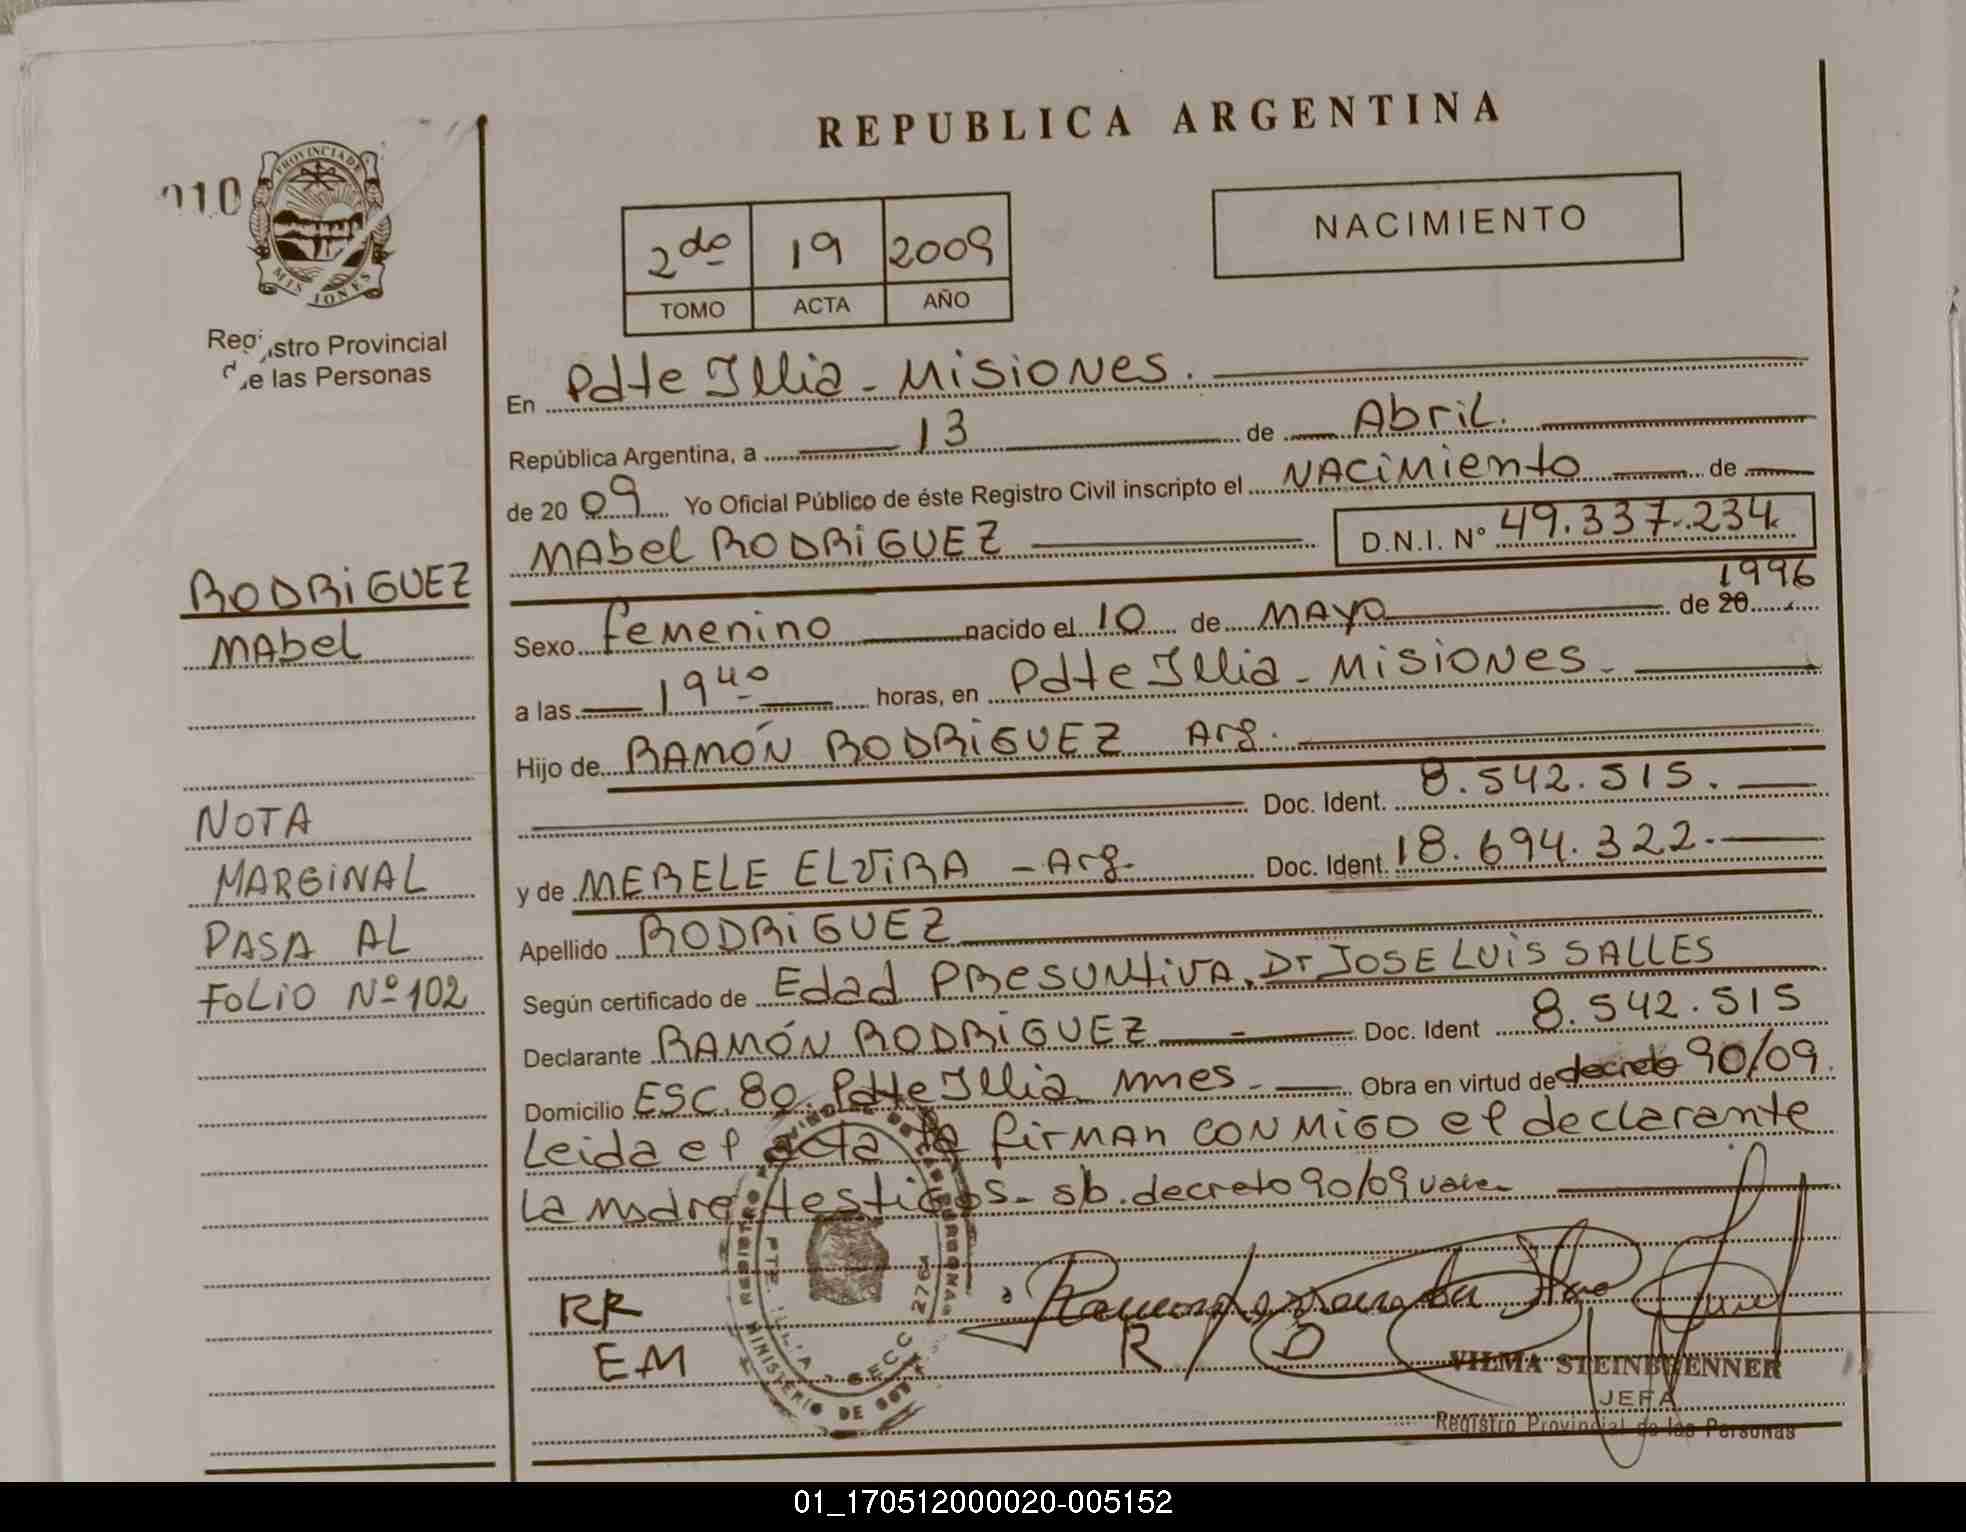 REPUBLICA ARGENTINA
010
PROVINCIA DE
MISIONES
Registro Provincial
de las Personas
2do 19 2009
TOMO ACTA AÑO
NACIMIENTO
En Pdte Illia - Misiones.
República Argentina, a 13 de Abril.
de 2009 Yo Oficial Público de éste Registro Civil inscripto el NACimiento de
MAbel RODRiGUEZ D.N.I. Nº 49.337.234
RODRiGUEZ
MAbel
Sexo femenino nacido el 10 de MAYO de 20 1996
a las 19 40 horas, en Pdte Illia - Misiones -
Hijo de RAMÓN RODRiGUEZ Arg.
Doc. Ident. 8.542.515.
y de MERELE ELViRA - Arg. Doc. Ident. 18.694.322.
Apellido RODRiGUEZ
Según certificado de Edad PResuntiva, Dr JOSE LUiS SALLES
Declarante RAMÓN RODRiGUEZ Doc. Ident 8.542.515
Domicilio ESC. 80. Pdte Illia mnes. Obra en virtud de decreto 90/09.
Leida el acta la firman conmigo el declarante
la madre testigos - s/b. decreto 90/09 vale -
NOTA
MARGINAL
PASA AL
FOLIO Nº 102
RR
EM
R D
PTE. ILLIA
SECC 2764
MINISTERIO DE GOB
VILMA STEINBRENNER
JEFA
Registro Provincial de las Personas
01_170512000020-005152